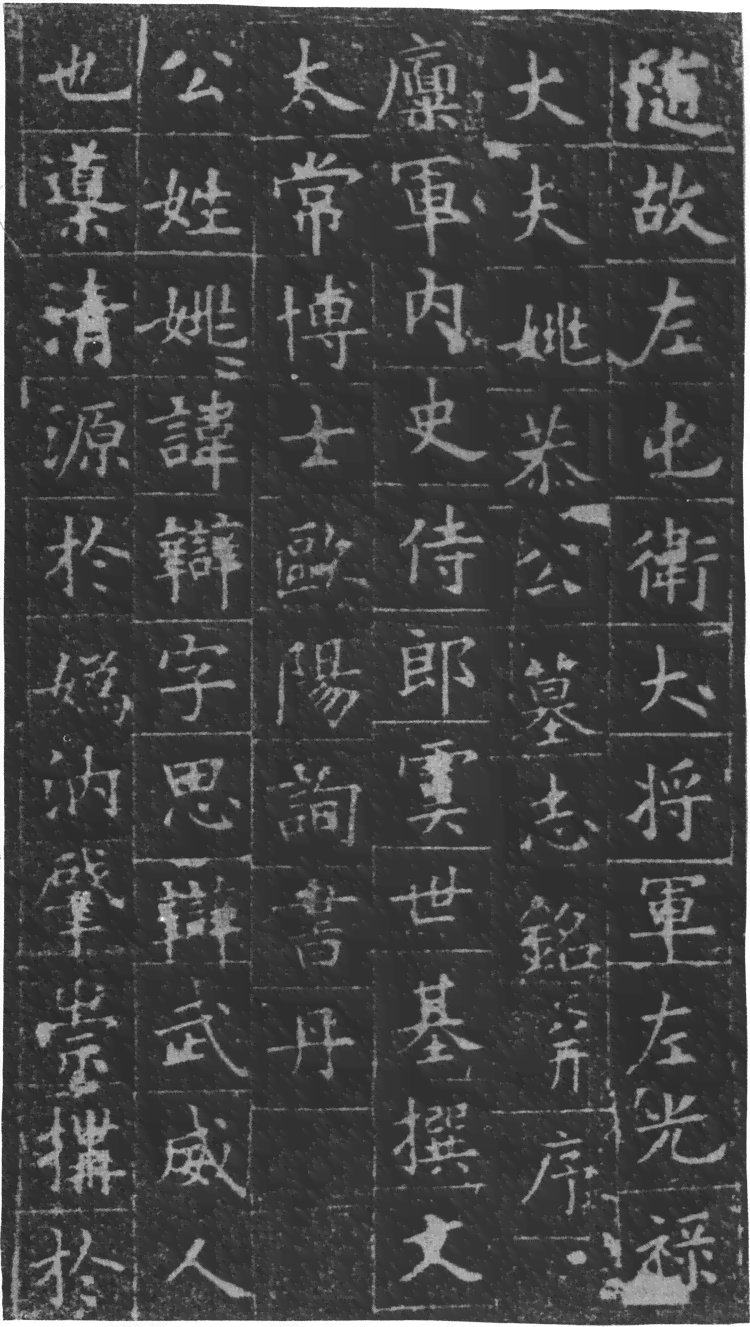 隨故左屯衛大將軍左光祿
大夫姚恭公墓志銘并序
稟軍內史侍郎虞世基撰文
太常博士歐陽詢書丹
公姓姚諱辯字思辯武威人
也導清源於媯汭肇崇構於